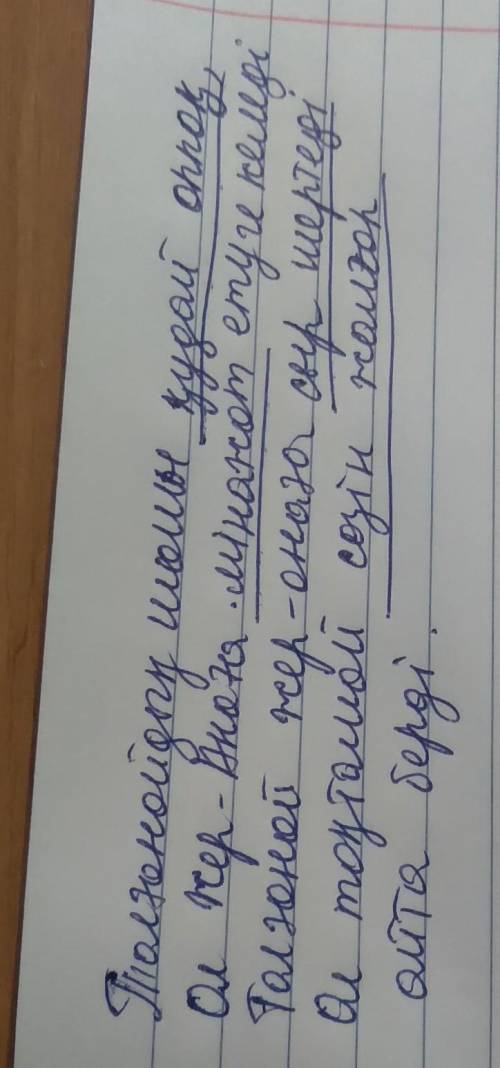 Толғонойдың шашы қудай аппақ,
Ол жер-Анаға мінажат етуге келеді
Толғоной жер-анаға сыр шертеді
Ол тоқталмай сөзін жалғап
айта берді.